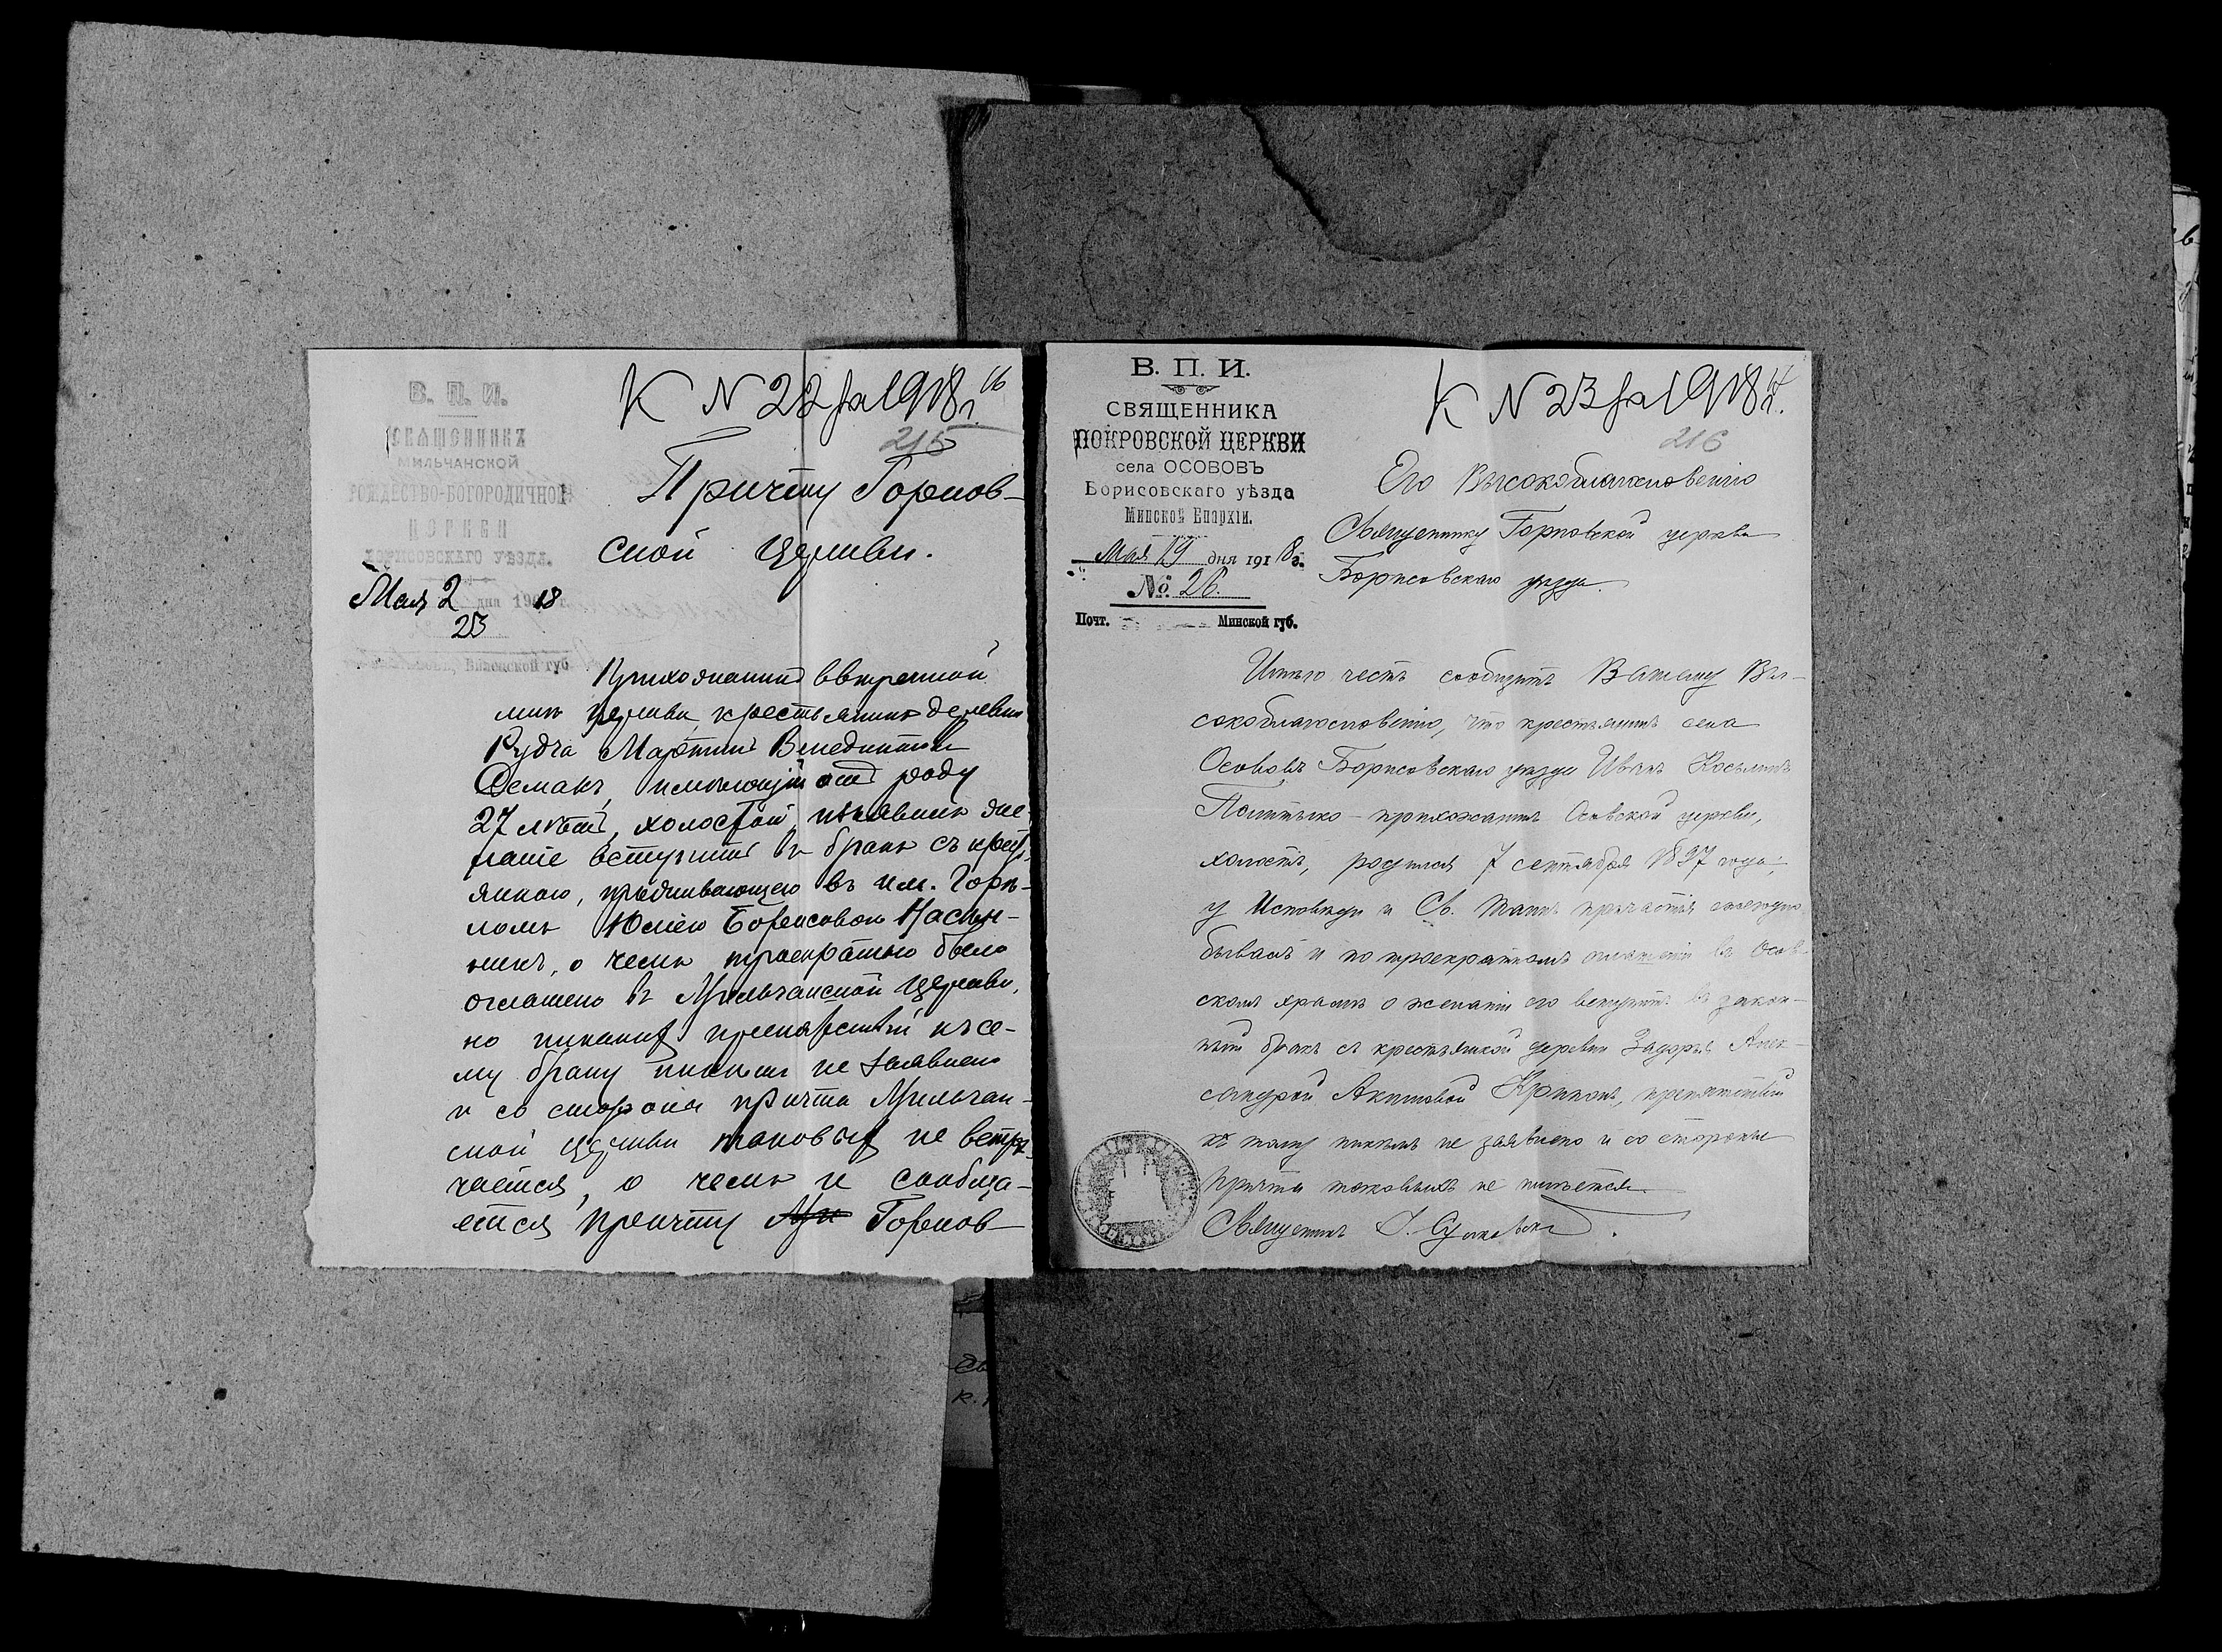 К N 22 за 1918 г.
215
В. П. И.
СВЯЩЕННИКЪ
МИЛЬЧАНСКОЙ
РОЖДЕСТВО-БОГОРОДИЧНОЙ
ЦЕРКВИ
БОРИСОВСКАГО УѢЗДА.
Мая 2 дня 1918 г.
23
Виленской губ.
Причту Горнов-
ской Церкви.
Прихожанинъ ввѣренной
мнѣ церкви, крестьянинъ деревни
Рудча Мартинъ Венедиктовъ
Семакъ, имѣющій отъ роду
27 лѣтъ, холостой, изъявилъ же-
ланіе вступить въ бракъ съ крест.
янкою, проживающею въ им. Гор-
Юліею Борисовою
о чемъ троекратно было
оглашено въ Мильчанской Церкви,
но никакихъ препятствій къ се-
му браку никѣмъ не заявлено
и со стороны причта Мильчан-
ской Церкви таковыхъ не встрѣ-
чается, о чемъ и сообща-
ется причту Горнов-
К N 23 за 1918 г.
216
В. П. И.
СВЯЩЕННИКА
ПОКРОВСКОЙ ЦЕРКВИ
села ОСОВОВЪ
Борисовскаго уѣзда
Минской Епархіи.
Мая 19 дня 1918 г.
№ 26.
Почт. Минской губ.
Его Высокоблагословенію
Священнику Горновской церкви
Борисовскаго уѣзда.
Имѣю честь сообщить Вашему Вы-
сокоблагословенію, что крестьянинъ села
Ососовъ Борисовскаго уѣзда Иванъ Косьминъ
прихожанинъ Осовской церкви,
холостъ, родился 7 сентября 1897 года;
у Исповѣди и Св. Таинъ причастія ежегодно
бывалъ и по троекратномъ оглашеніи въ Осов-
скомъ храмѣ о желаніи его вступить въ закон-
ный бракъ съ крестьянкой деревни Задорье Алек-
сандрой Акимовой препятствій
къ тому никѣмъ не заявлено и со стороны
причта таковыхъ не имѣется.
Священникъ